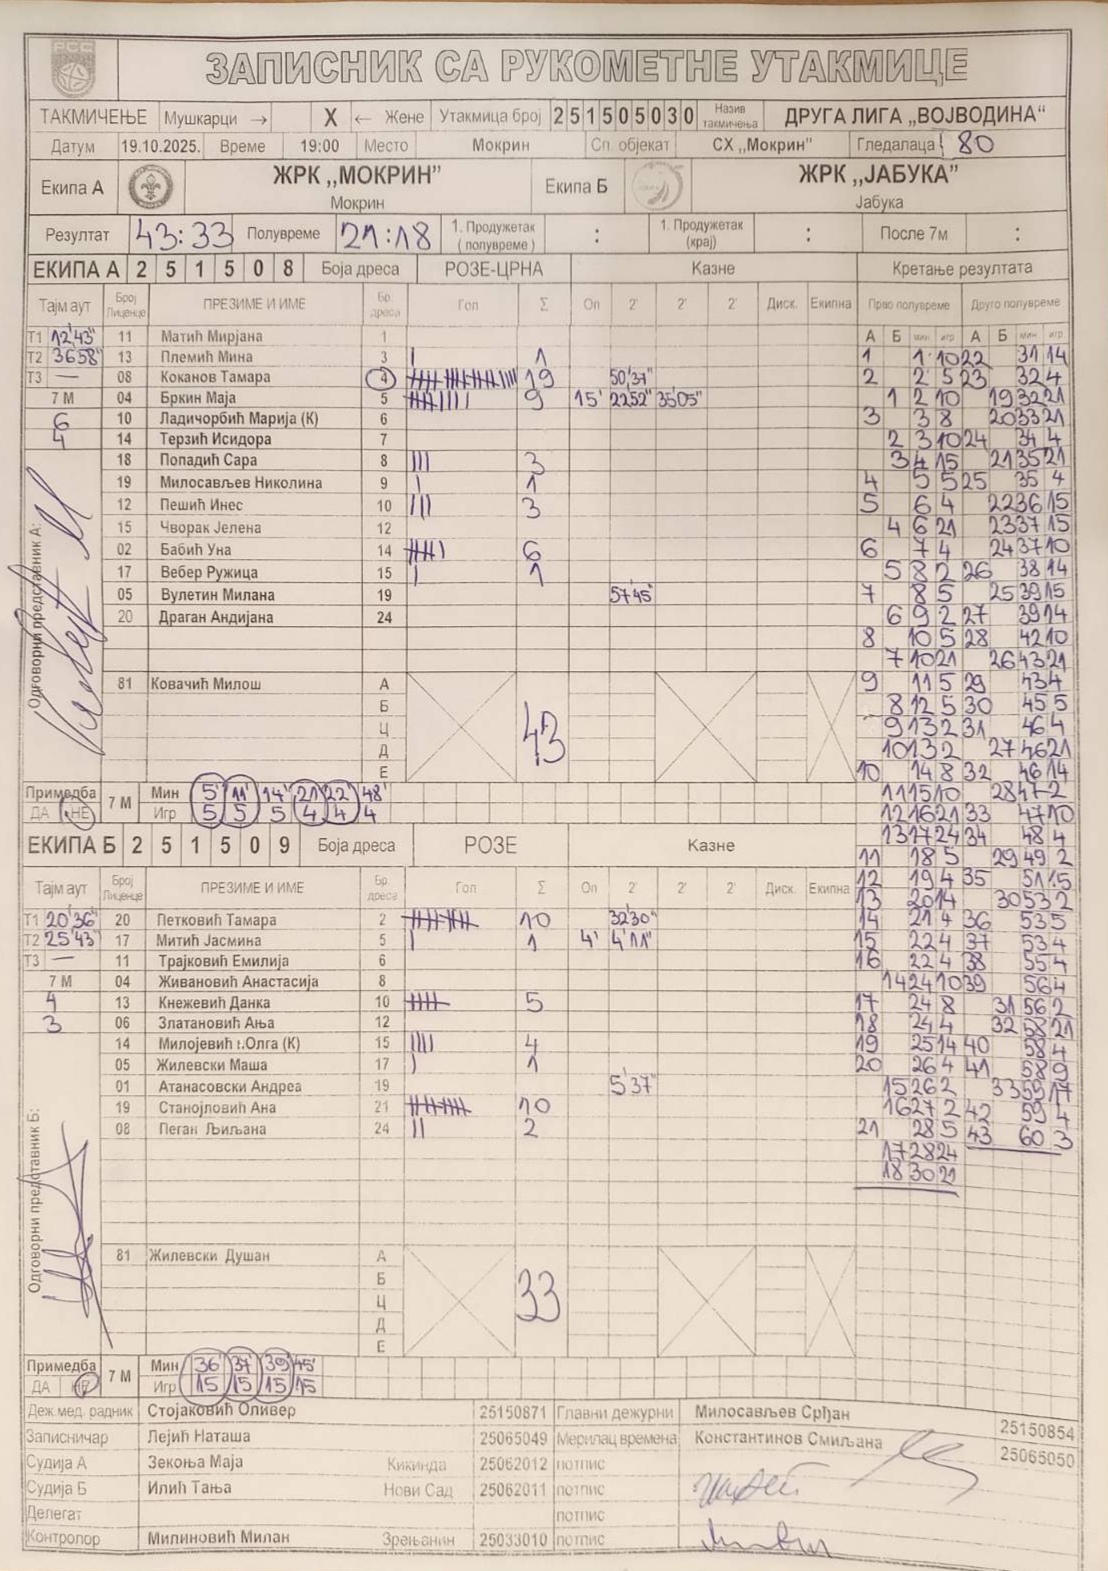 РСС
ЗАПИСНИК СА РУКОМЕТНЕ УТАКМИЦЕ
ТАКМИЧЕЊЕ Мушкарци → X ← Жене Утакмица број 2 5 1 5 0 5 0 3 0 Назив такмичења ДРУГА ЛИГА „ВОЈВОДИНА“
Датум 19.10.2025. Време 19:00 Место Мокрин Сп. објекат СХ „Мокрин" Гледалаца 80
Екипа А ЖРК „МОКРИН” Екипа Б ЖРК „ЈАБУКА”
Мокрин Јабука
Резултат 43:33 Полувреме 21:18 1. Продужетак (полувреме) : 1. Продужетак (крај) : После 7м :
ЕКИПА А 2 5 1 5 0 8 Боја дреса РОЗЕ-ЦРНА Казне Кретање резултата
Тајм аут Број Лиценце ПРЕЗИМЕ И ИМЕ Бр. дреса Гол Σ Оп 2' 2' 2' Диск. Екипна Прво полувреме Друго полувреме
Т1 12'43" 11 Матић Мирјана 1 А Б мин игр А Б мин игр
Т2 36'58" 13 Племић Мина 3 I 1 1 1 10 22 31 14
Т3 — 08 Коканов Тамара 4 19 50'37" 2 2 5 23 32 4
7 М 04 Бркин Маја 5 9 15' 22'52" 35'05" 1 2 10 19 32 21
6 10 Ладичорбић Марија (К) 6 3 3 8 20 33 21
4 14 Терзић Исидора 7 2 3 10 24 34 4
18 Попадић Сара 8 III 3 3 4 15 21 35 21
19 Милосављев Николина 9 I 1 4 5 5 25 35 4
12 Пешић Инес 10 III 3 5 6 4 22 36 15
15 Чворак Јелена 12 4 6 21 23 37 15
02 Бабић Уна 14 6 6 7 4 24 37 10
17 Вебер Ружица 15 I 1 5 8 2 26 38 14
05 Вулетин Милана 19 57'45" 7 8 5 25 39 15
20 Драган Андијана 24 6 9 2 27 39 14
8 10 5 28 42 10
7 10 21 26 43 21
81 Ковачић Милош А 9 11 5 29 43 4
Б 8 12 5 30 45 5
Ц 43 9 13 2 31 46 4
Д 10 13 2 27 46 21
Е 10 14 8 32 46 14
Примедба 7 М Мин 5' 11' 14' 21' 22' 48' 11 15 10 28 47 2
ДА НЕ Игр 5 5 5 4 4 4 12 16 21 33 47 10
ЕКИПА Б 2 5 1 5 0 9 Боја дреса РОЗЕ Казне 13 17 24 34 48 4
11 18 5 29 49 2
Тајм аут Број Лиценце ПРЕЗИМЕ И ИМЕ Бр. дреса Гол Σ Оп 2' 2' 2' Диск. Екипна 12 19 4 35 51 15
13 20 14 30 53 2
Т1 20'36" 20 Петковић Тамара 2 10 32'30" 14 21 4 36 53 5
Т2 25'43" 17 Митић Јасмина 5 I 1 4' 4'11" 15 22 4 37 53 4
Т3 — 11 Трајковић Емилија 6 16 22 4 38 55 4
7 М 04 Живановић Анастасија 8 14 24 10 39 56 4
4 13 Кнежевић Данка 10 5 17 24 8 31 56 2
3 06 Златановић Ања 12 18 24 4 32 58 21
14 Милојевић г.Олга (К) 15 IIII 4 19 25 14 40 58 4
05 Жилевски Маша 17 I 1 20 26 4 41 58 9
01 Атанасовски Андреа 19 5'37" 15 26 2 33 59 17
19 Станојловић Ана 21 10 16 27 2 42 59 4
08 Пеган Љиљана 24 II 2 21 28 5 43 60 3
17 28 24
18 30 21
81 Жилевски Душан А
Б
Ц 33
Д
Е
Примедба 7 М Мин 36' 37' 39' 45'
ДА НЕ Игр 15 15 15 15
Одговорни представник А:
Одговорни представник Б:
Деж.мед. радник Стојаковић Оливер 25150871 Главни дежурни Милосављев Срђан 25150854
Записничар Лејић Наташа 25065049 Мерилац времена Константинов Смиљана 25065050
Судија А Зекоња Маја Кикинда 25062012 потпис
Судија Б Илић Тања Нови Сад 25062011 потпис
Делегат потпис
Контролор Милиновић Милан Зрењанин 25033010 потпис